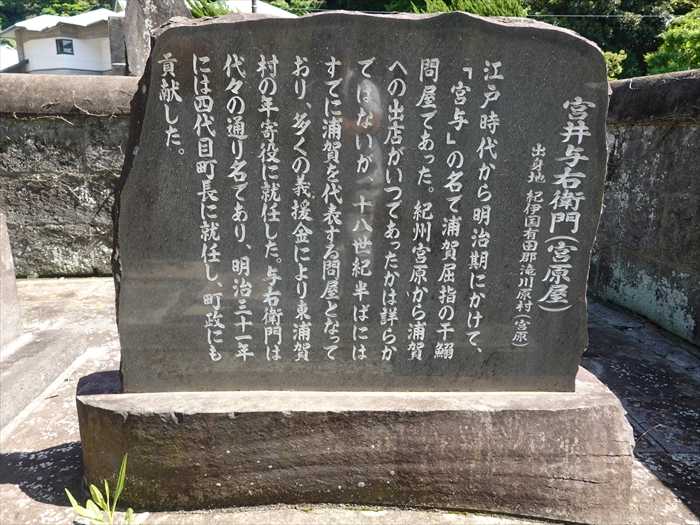 宮井与右衛門(宮原屋)
出身地 紀伊国有田郡滝川原村(宮原)
江戸時代から明治期にかけて、
「宮与」の名で浦賀屈指の干鰯
問屋であった。紀州宮原から浦賀
への出店がいつであったかは詳らか
ではないが、十八世紀半ばには
すでに浦賀を代表する問屋となって
おり、多くの義援金により東浦賀
村の年寄役に就任した。与右衛門は
代々の通り名であり、明治三十一年
には四代目町長に就任し、町政にも
貢献した。